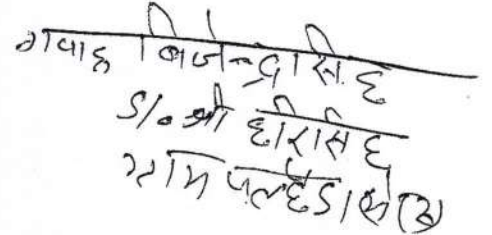 गवाह बिजेन्द्र सिंह
S/o श्री हीरा सिंह
ग्राम पल्हैडा